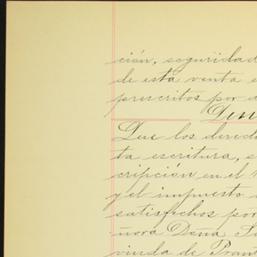 ción, seguridad
de esta venta e
prescritos por
Que los derech
ta escritura, s
cripción en el
y el impuesto
satisfechos por
ñora Doña
viuda de